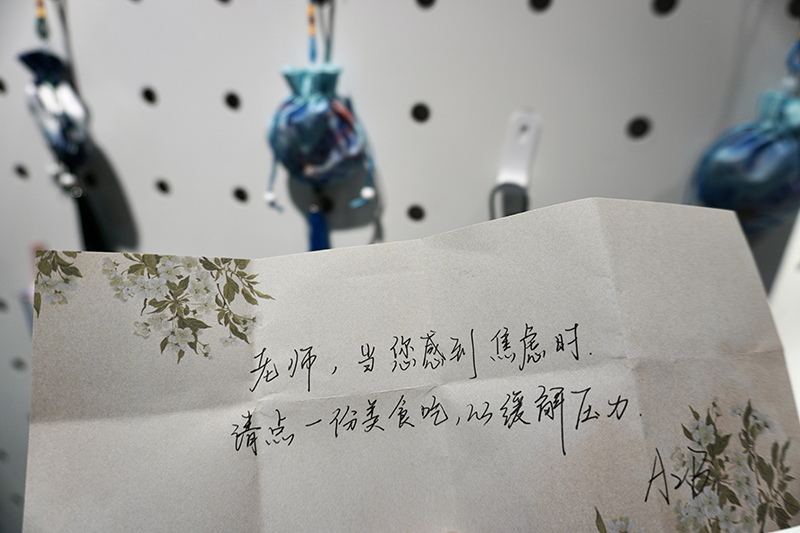 老师，当您感到焦虑时.
请点一份美食吃，以缓解压力.